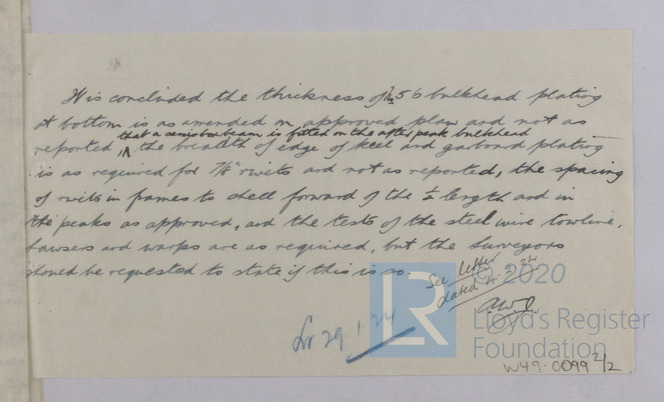 It is concluded the thickness of No 56 bulkhead plating
at bottom is as amended on approved plan and not as
that a semi box beam is fitted on the after peak bulkhead
reported, the breadth of edge of keel and garboard plating
is as required for 7/8" rivets and not as reported, the spacing
of rivets in frames to shell forward of the 1/2 length and in
the peaks as approved, and the tests of the steel wire towline,
hawsers and warps are as required, but the Surveyors
should be requested to state if this is so.
See letter
dated 4.2.24
Lr 29.1.24
© 2020
LR
Lloyd's Register
Foundation
W49-0099 2/2